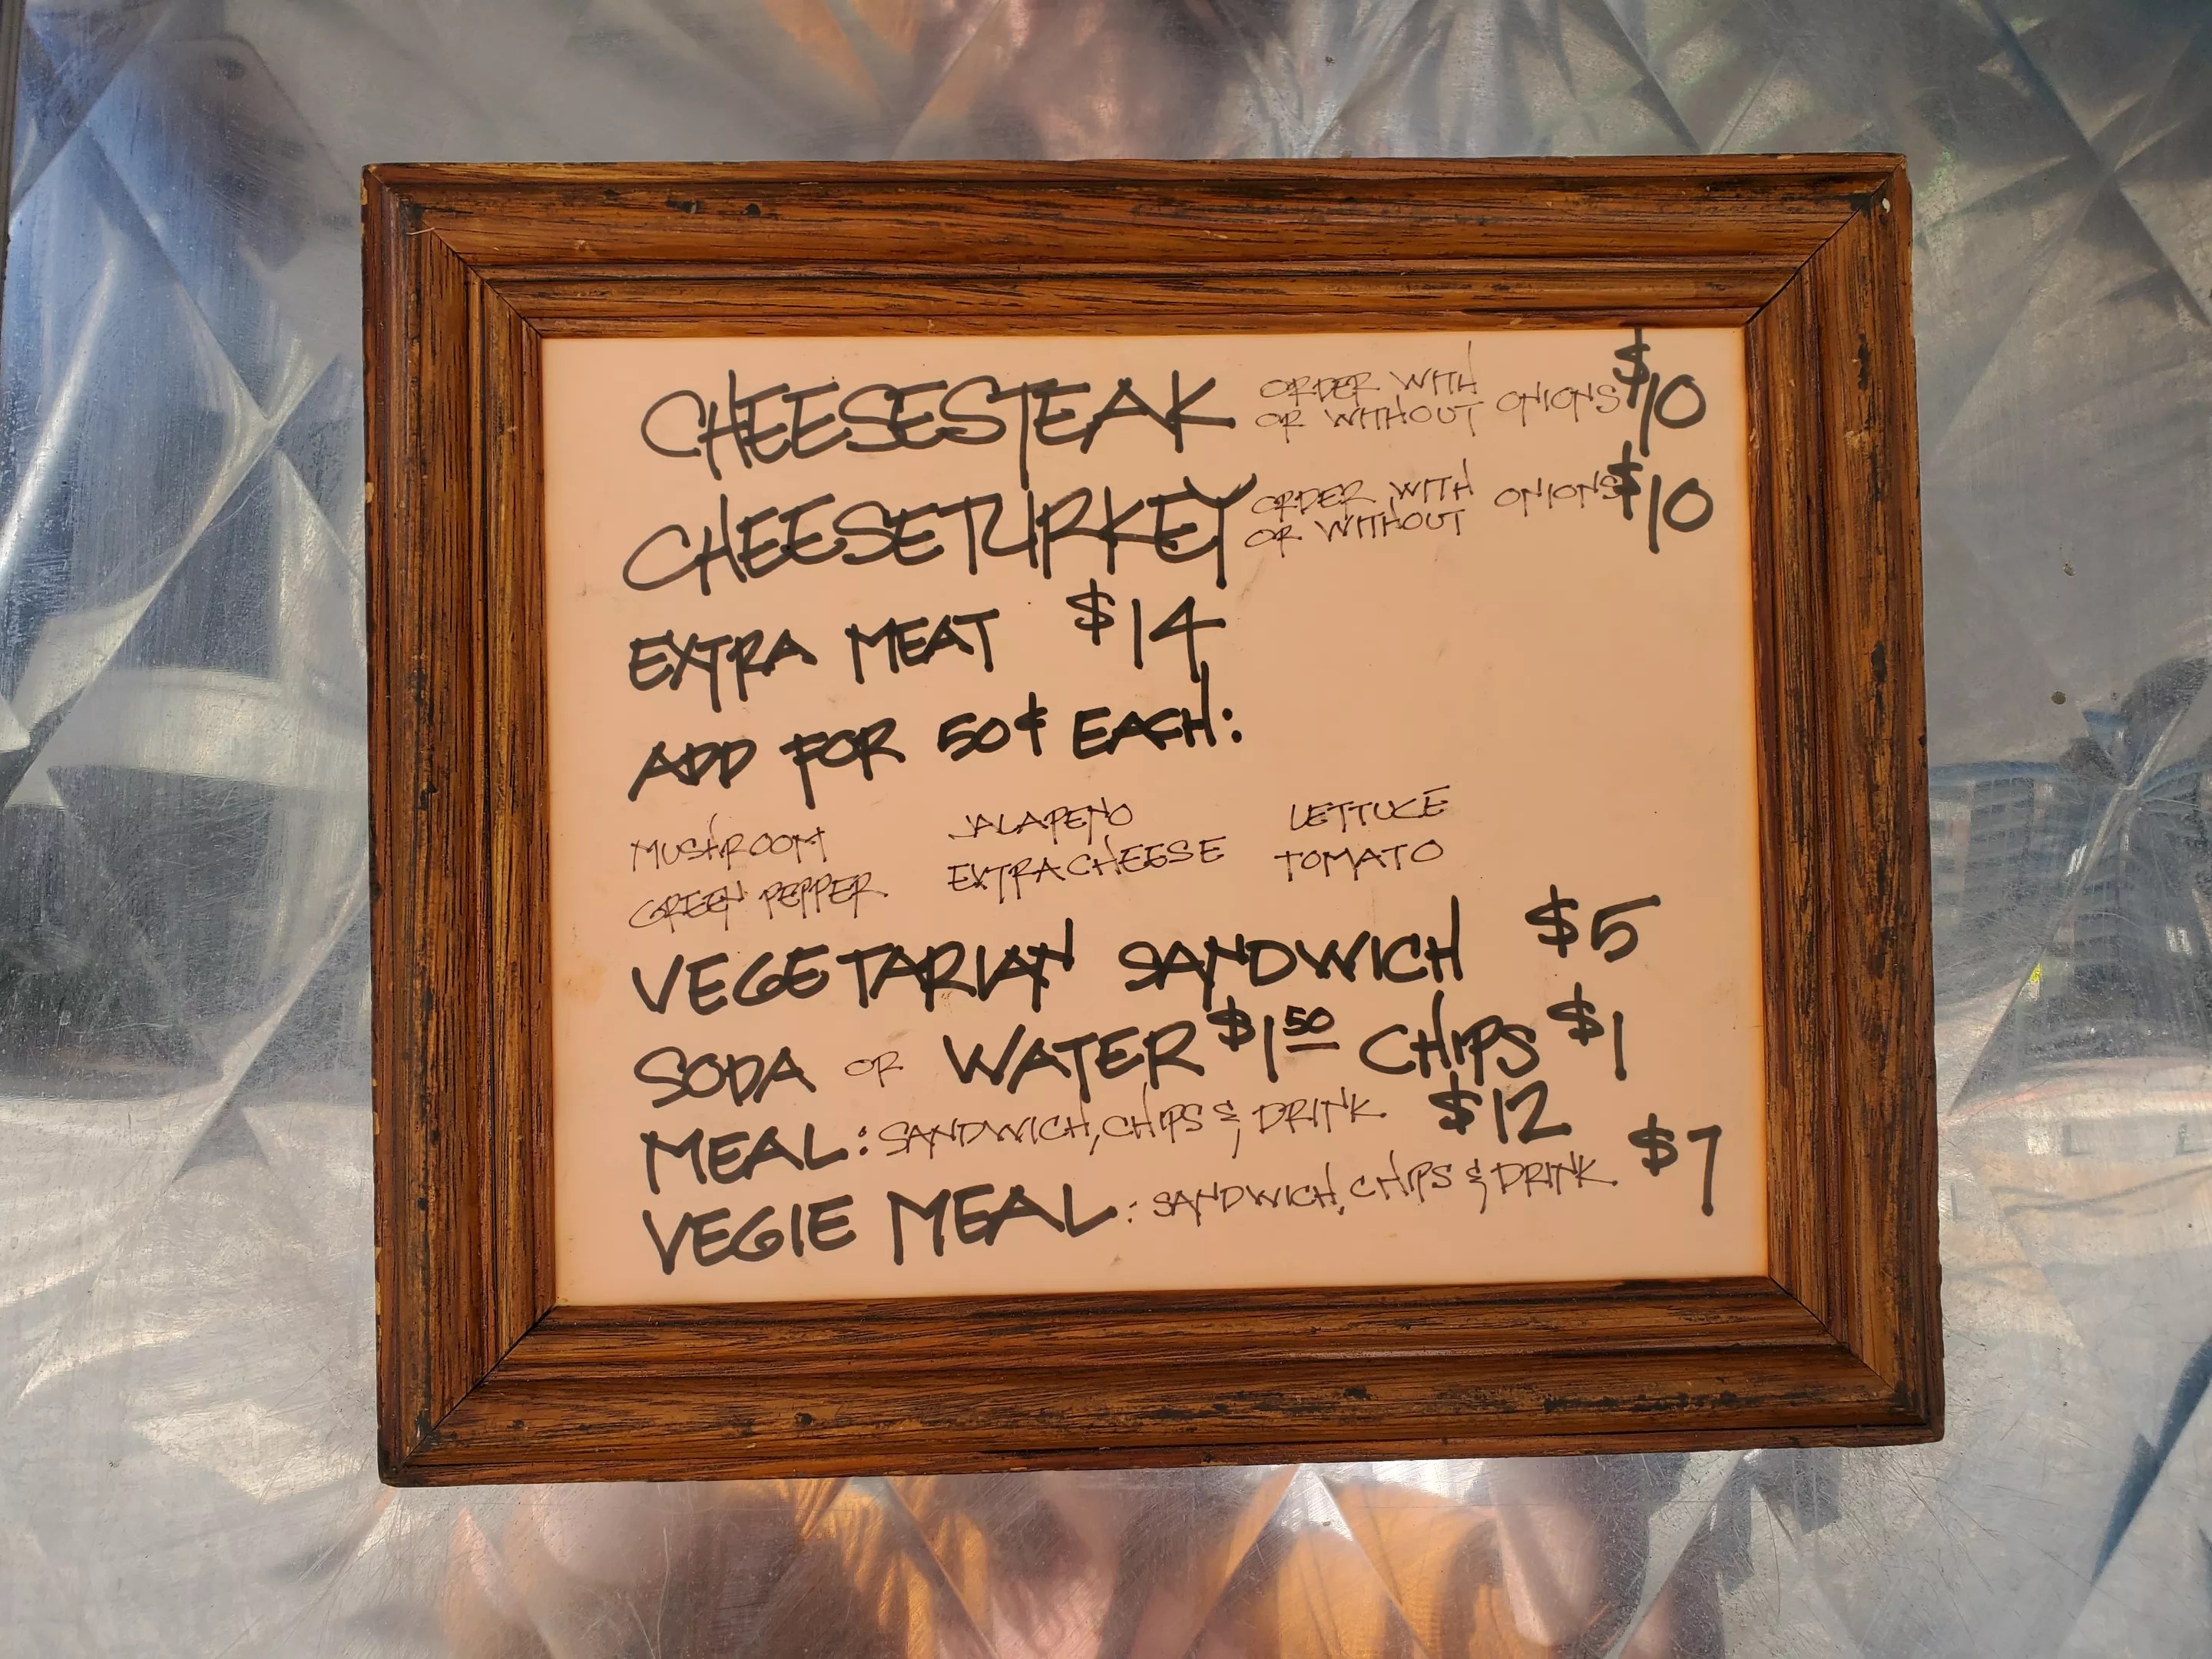 CHEESESTEAK ORDER WITH OR WITHOUT ONIONS $10
CHEESETURKEY ORDER WITH OR WITHOUT ONIONS $10
EXTRA MEAT $14
ADD FOR 50¢ EACH:
MUSHROOM JALAPENO LETTUCE
GREEN PEPPER EXTRA CHEESE TOMATO
VEGETARIAN SANDWICH $5
SODA OR WATER $1 50 CHIPS $1
MEAL: SANDWICH, CHIPS & DRINK $12
VEGIE MEAL: SANDWICH, CHIPS & DRINK $7